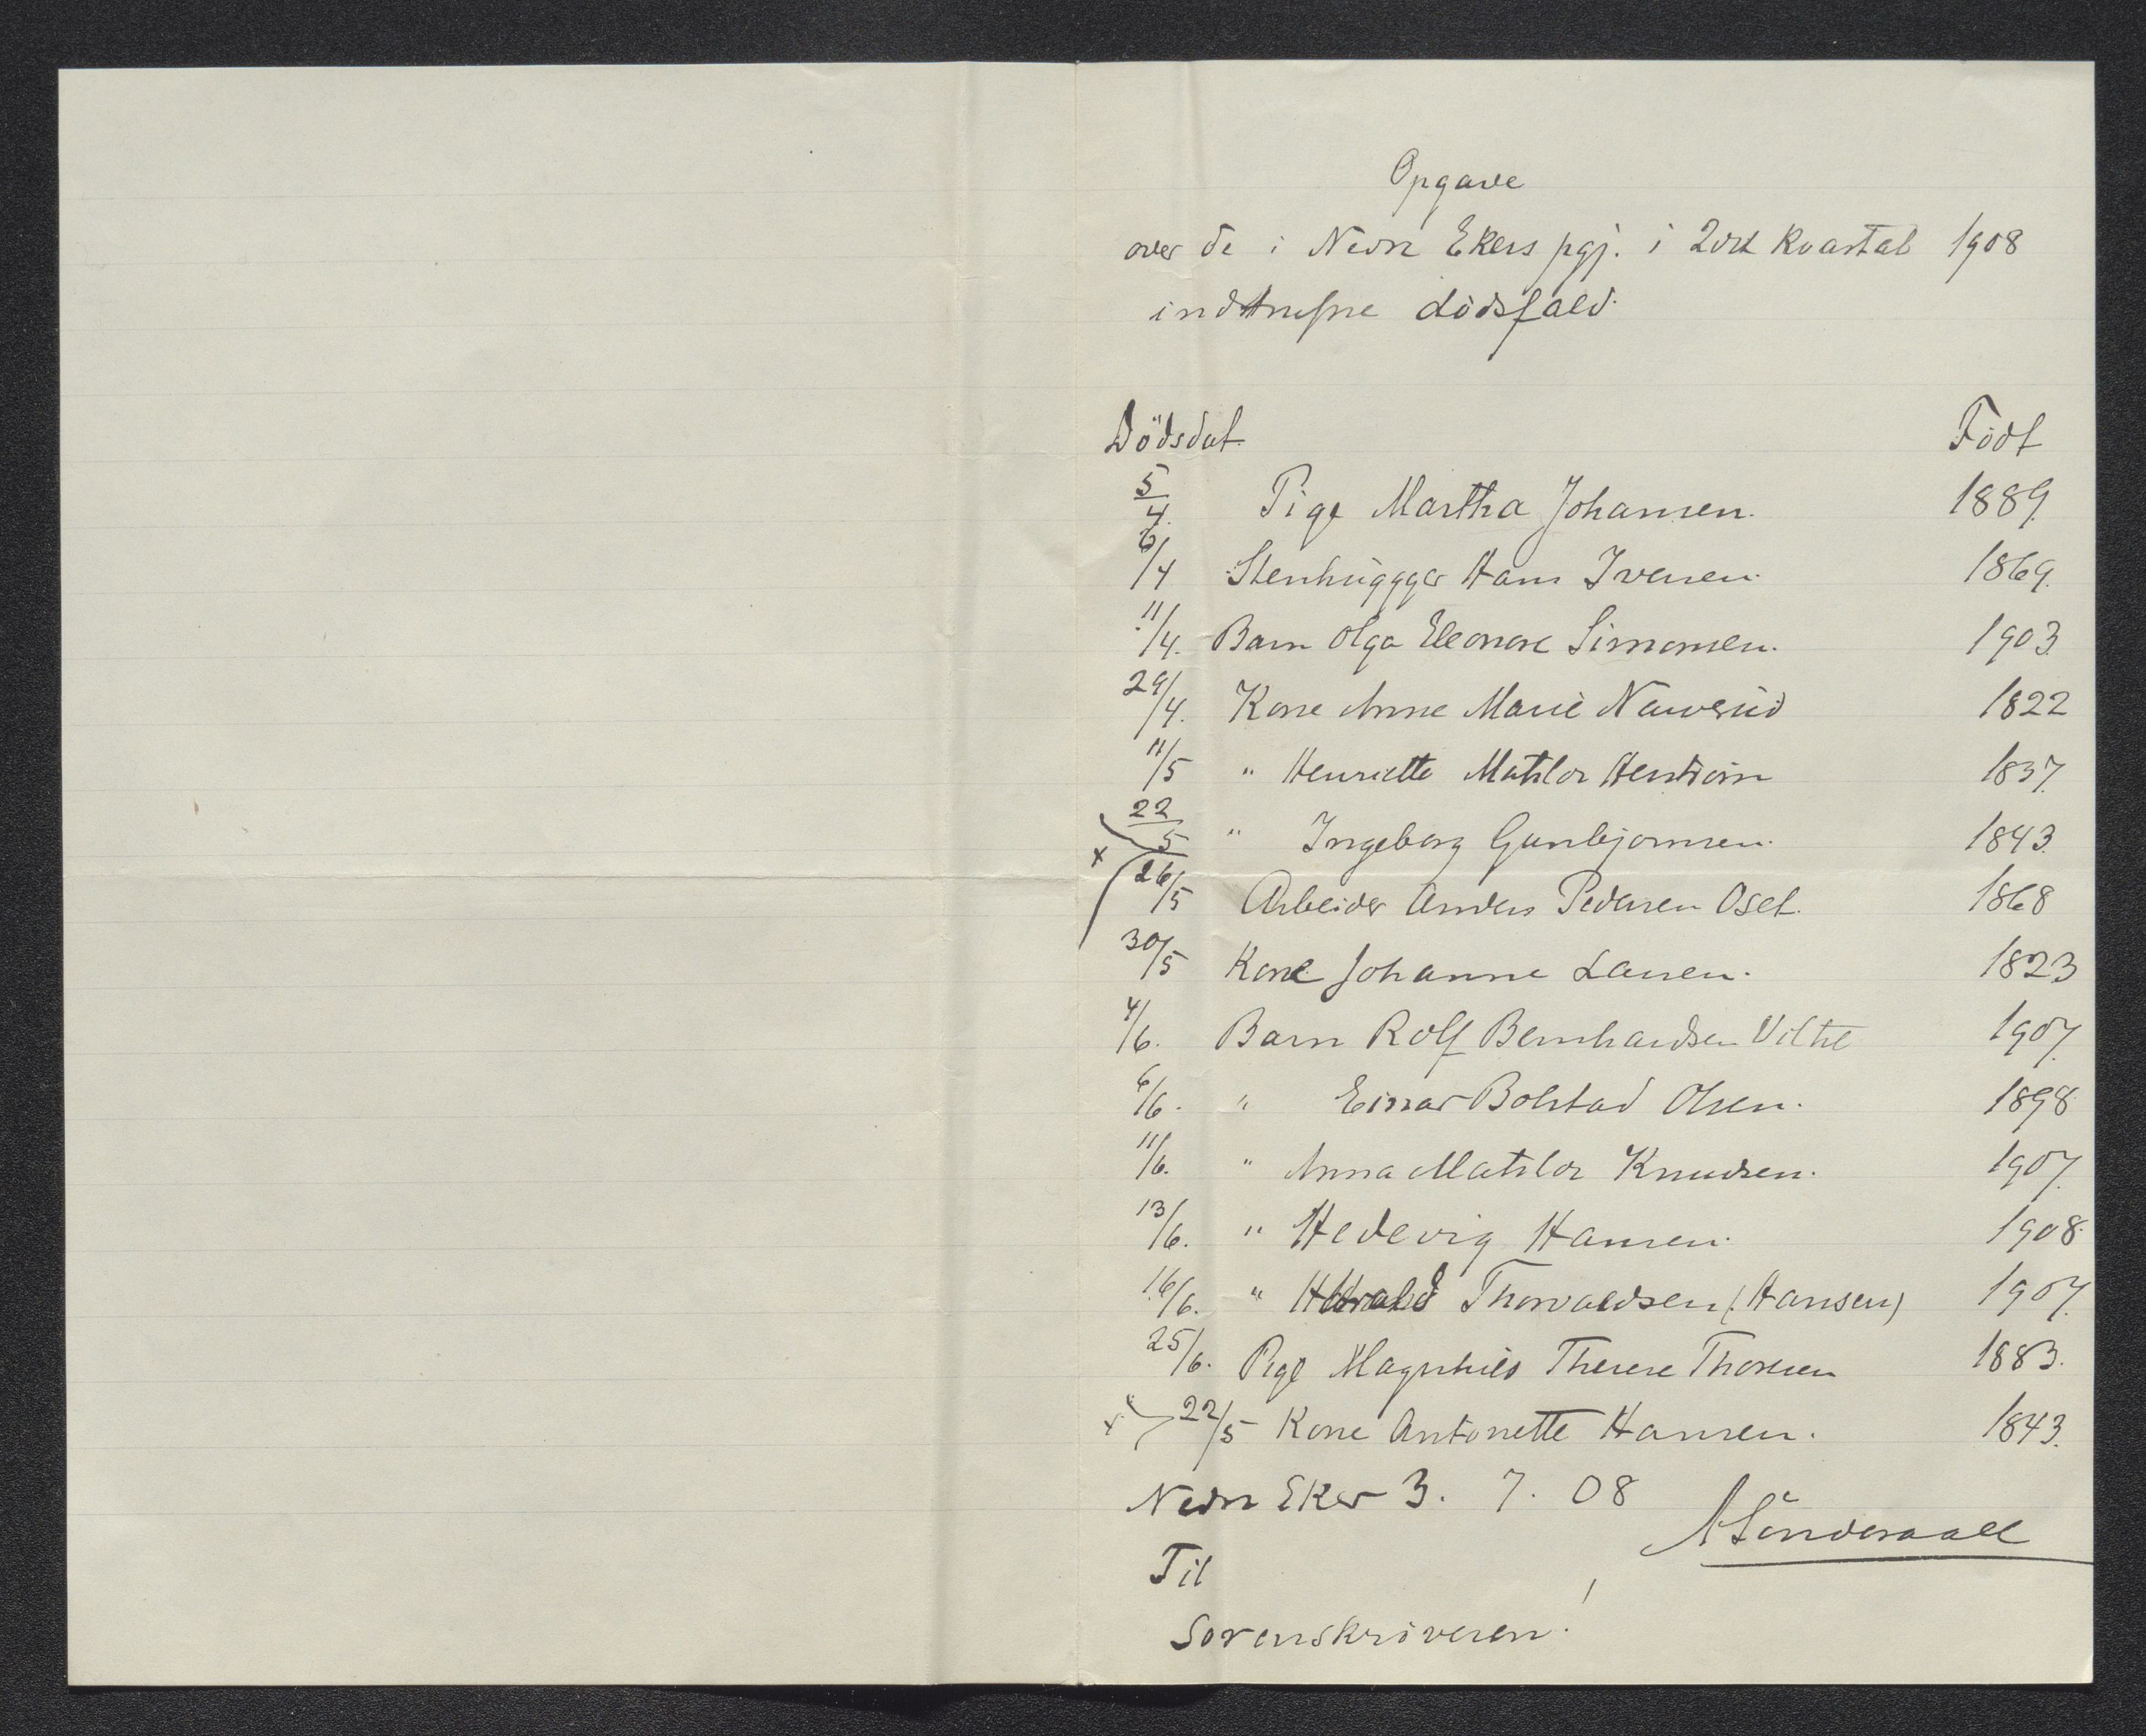 Opgave
over de i Nedre Ekers pgj. i 2det kvartal 1908
indtrufne dödsfald.
Dödsdat. Födt
5/4 Pige Martha Johansen. 1889.
6/4 Stenhugger Hans Iversen. 1869.
11/4. Barn Olga Eleonore Simonsen. 1903.
29/4. Kone Anne Marie Narverud 1822
11/5 " Henriette Matilde 1837.
x 22/5 " Ingeborg Gunbjørnsen. 1843.
26/5 Arbeider Anders Pedersen Oset. 1868
30/5 Kone Johanne Larsen. 1823
4/6. Barn Rolf Bernhardsen 1907.
6/6. " Einar Bolstad Olsen. 1898
11/6. " Anna Matilde Knudsen. 1907.
13/6. " Hedevig Hansen. 1908.
16/6. " Harald Thorvaldsen (Hansen) 1907.
25/6. Pige Magnhild Therese Thoresen 1883.
x 22/5 Kone Antonette Hansen. 1843.
Nedre Eker 3. 7. 08
A Sönderaall
Til
Sorenskriveren!